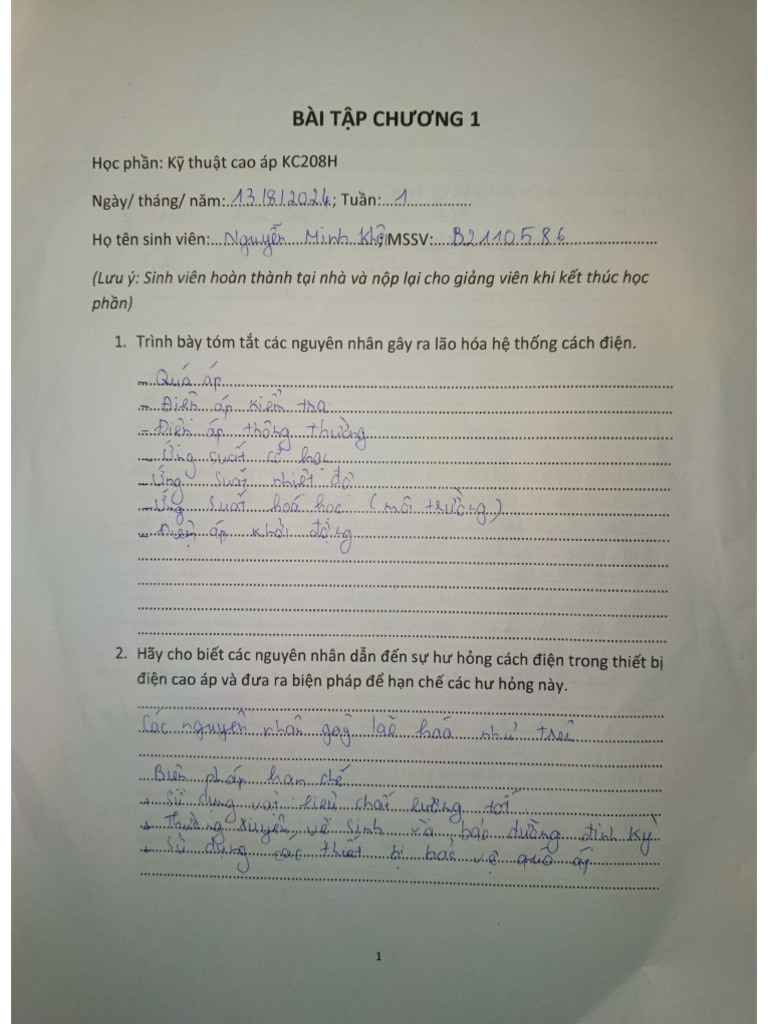 BÀI TẬP CHƯƠNG 1
Học phần: Kỹ thuật cao áp KC208H
Ngày/ tháng/ năm: 13/8/2024; Tuần: 1
Họ tên sinh viên: Nguyễn Minh Khôi; MSSV: B2110586
(Lưu ý: Sinh viên hoàn thành tại nhà và nộp lại cho giảng viên khi kết thúc học
phần)
1. Trình bày tóm tắt các nguyên nhân gây ra lão hóa hệ thống cách điện.
- Quá áp
- Điện áp kiểm tra
- Điện áp thông thường
- Ứng suất cơ học
- Ứng suất nhiệt độ
- Ứng suất hoá học (môi trường)
- Điện áp khởi động
2. Hãy cho biết các nguyên nhân dẫn đến sự hư hỏng cách điện trong thiết bị
điện cao áp và đưa ra biện pháp để hạn chế các hư hỏng này.
Các nguyên nhân gây lão hoá như trên
Biện pháp hạn chế
+ Sử dụng vật liệu chất lượng tốt
+ Thường xuyên vệ sinh và bảo dưỡng định kỳ
+ Sử dụng các thiết bị bảo vệ quá áp
1